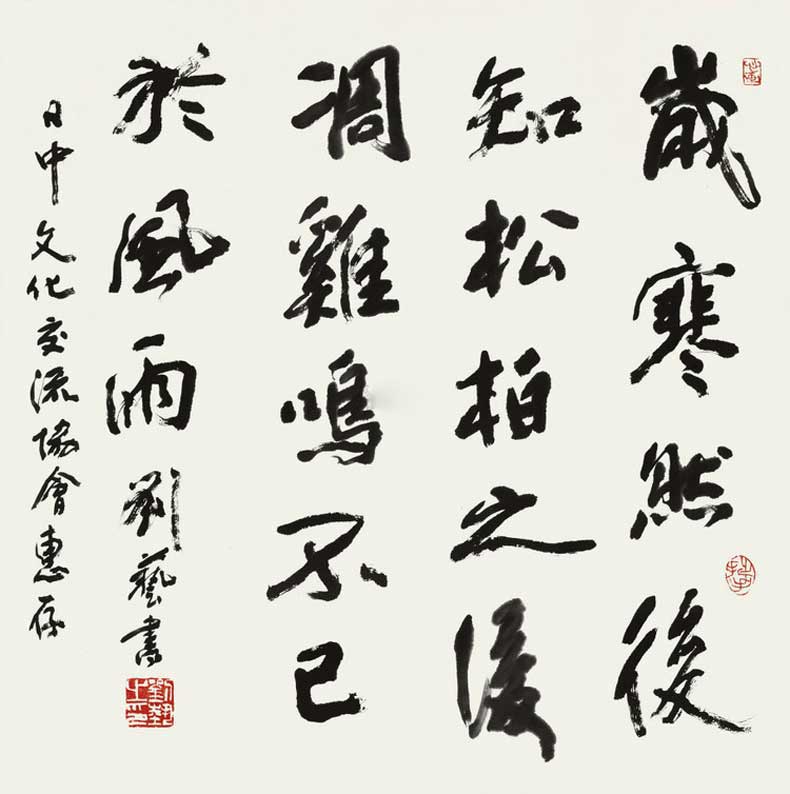 歲寒然後
知松柏之後
凋雞鳴不已
於風雨
劉藝書
日中文化交流協會惠存
劉藝之印